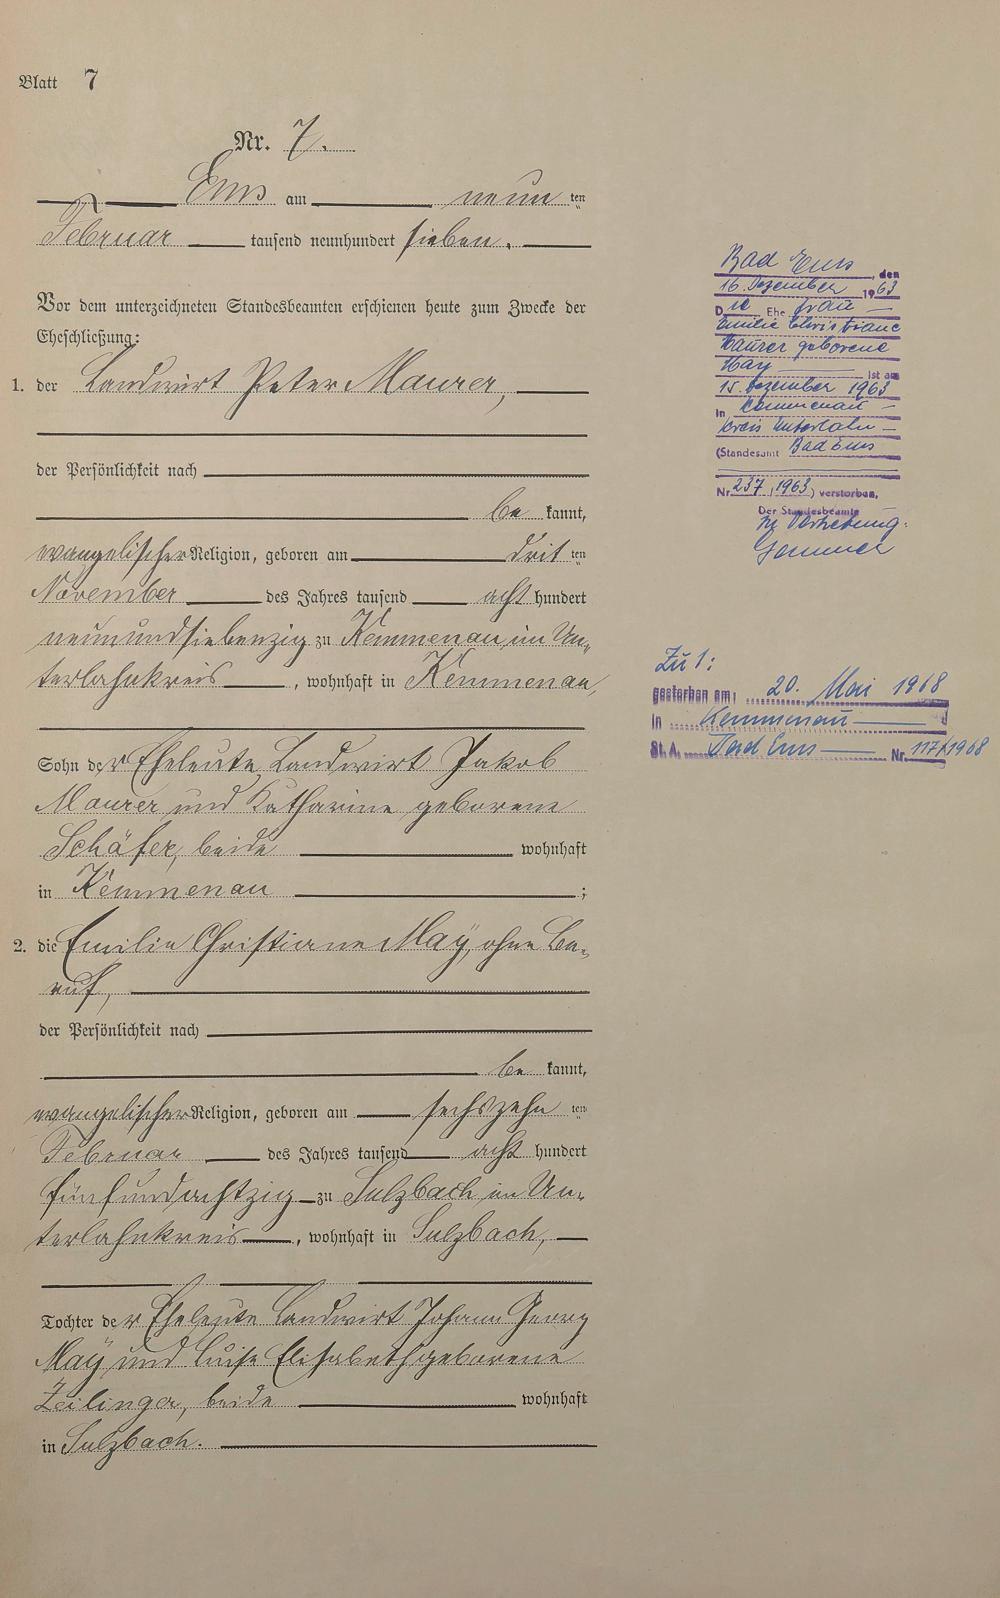 Blatt 7
Nr. 7.
Ems am neun ten
Februar tausend neunhundert sieben.
Vor dem unterzeichneten Standesbeamten erschienen heute zum Zwecke der
Eheschließung:
1. der Landwirt Peter Maurer,
der Persönlichkeit nach
be kannt,
evangelischer Religion, geboren am drit ten
November des Jahres tausend acht hundert
neunundsiebenzig zu Kemmenau im Un-
terlahnkreis, wohnhaft in Kemmenau,
Sohn der Eheleute Landwirt Jakob
Maurer und Katharine geborene
Schäfer, beide wohnhaft
in Kemmenau ;
2. die Emilie Christiane Maÿ, ohne Be-
ruf,
der Persönlichkeit nach
be kannt,
evangelischer Religion, geboren am sechszehn ten
Februar des Jahres tausend acht hundert
fünfundachtzig zu Sulzbach im Un-
terlahnkreis, wohnhaft in Sulzbach,
Tochter der Eheleute Landwirt Johann Georg
Maÿ und Luise Elisabeth geborene
Zeilinger, beide wohnhaft
in Sulzbach.
Bad Ems, den
16. Dezember 1963
Die Ehefrau
Emilie Christiane
Maurer geborene
May ist am
15. Dezember 1963
in Kemmenau
Kreis Unterlahn
(Standesamt Bad Ems
Nr. 237/1963) verstorben.
Der Standesbeamte
In Vertretung:
Zu 1:
gestorben am: 20. Mai 1968
in Kemmenau
St. A. Bad Ems Nr. 117/1968